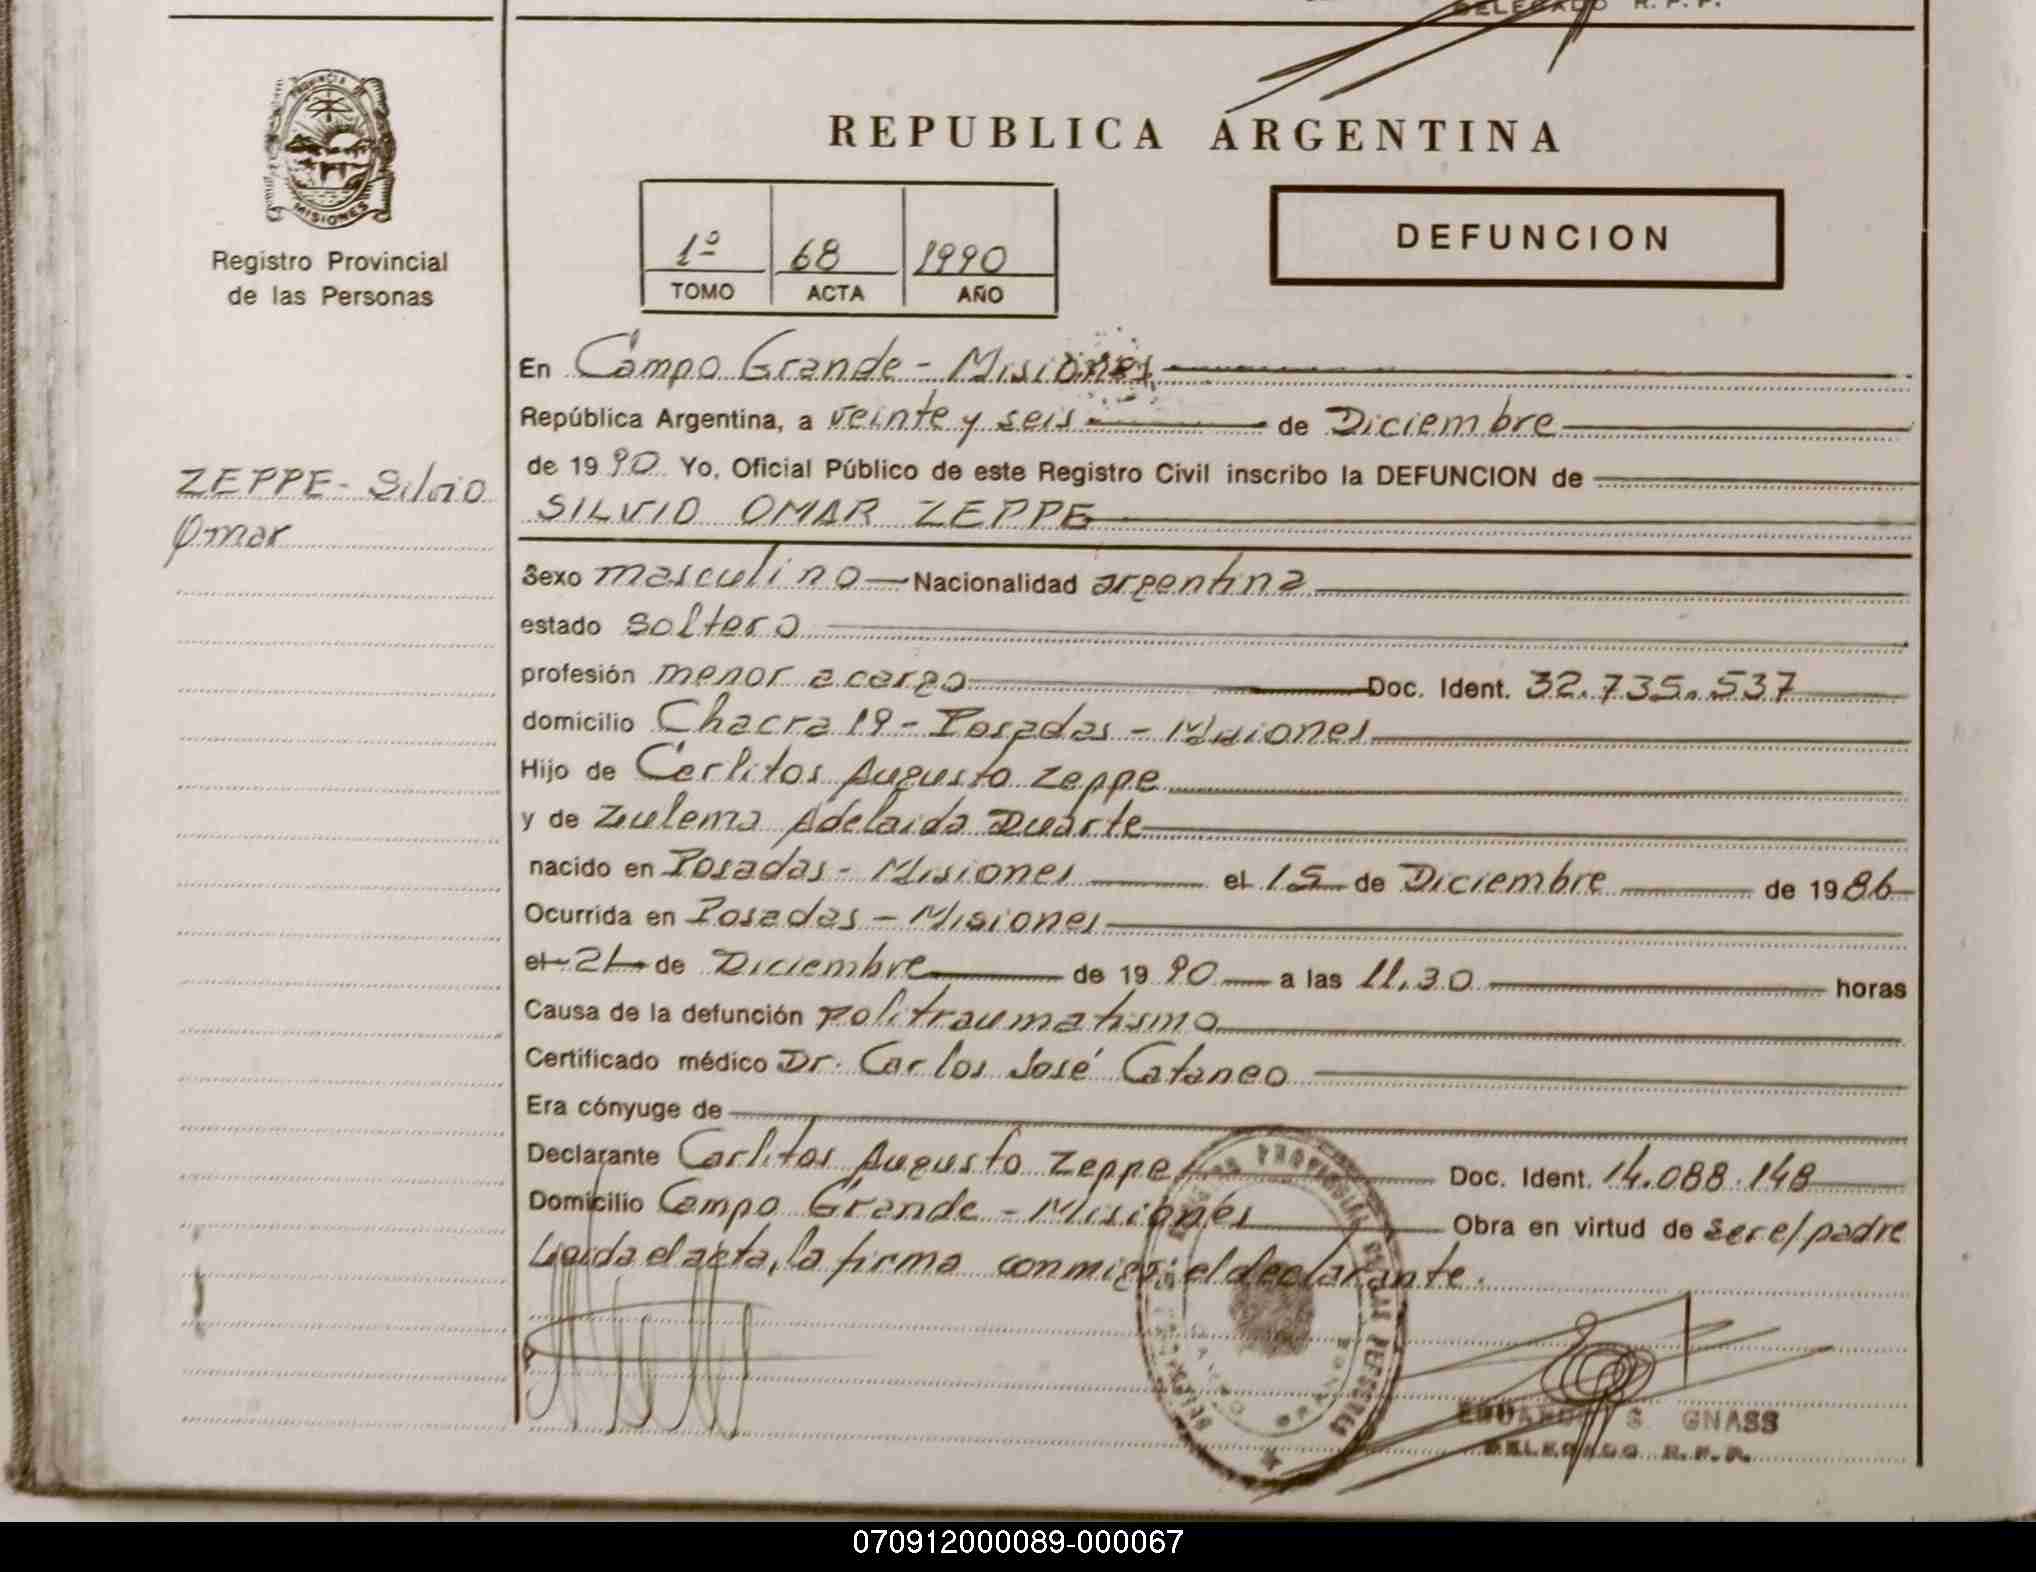 DELEGADO R. P. P.
PROVINCIA DE
MISIONES
Registro Provincial
de las Personas
REPUBLICA ARGENTINA
1º 68 1990
TOMO ACTA AÑO
DEFUNCION
ZEPPE - Silvio
Omar
En Campo Grande - Misiones
República Argentina, a veinte y seis de Diciembre
de 1990 Yo, Oficial Público de este Registro Civil inscribo la DEFUNCION de
SILVIO OMAR ZEPPE
Sexo masculino Nacionalidad argentina
estado soltero
profesión menor a cargo Doc. Ident. 32.735.537
domicilio Chacra 19 - Posadas - Misiones
Hijo de Carlitos Augusto Zeppe
y de Zulema Adelaida Duarte
nacido en Posadas - Misiones el 15 de Diciembre de 1986
Ocurrida en Posadas - Misiones
el 21 de Diciembre de 1990 a las 11.30 horas
Causa de la defunción politraumatismo
Certificado médico Dr. Carlos José Cataneo
Era cónyuge de
Declarante Carlitos Augusto Zeppe Doc. Ident. 14.088.148
Domicilio Campo Grande - Misiones Obra en virtud de ser el padre
Leída el acta, la firma conmigo el declarante.
PROVINCIAL DE LAS PERSONAS
GRANDE
EDUARDO S. GNASS
DELEGADO R.P.P.
070912000089-000067